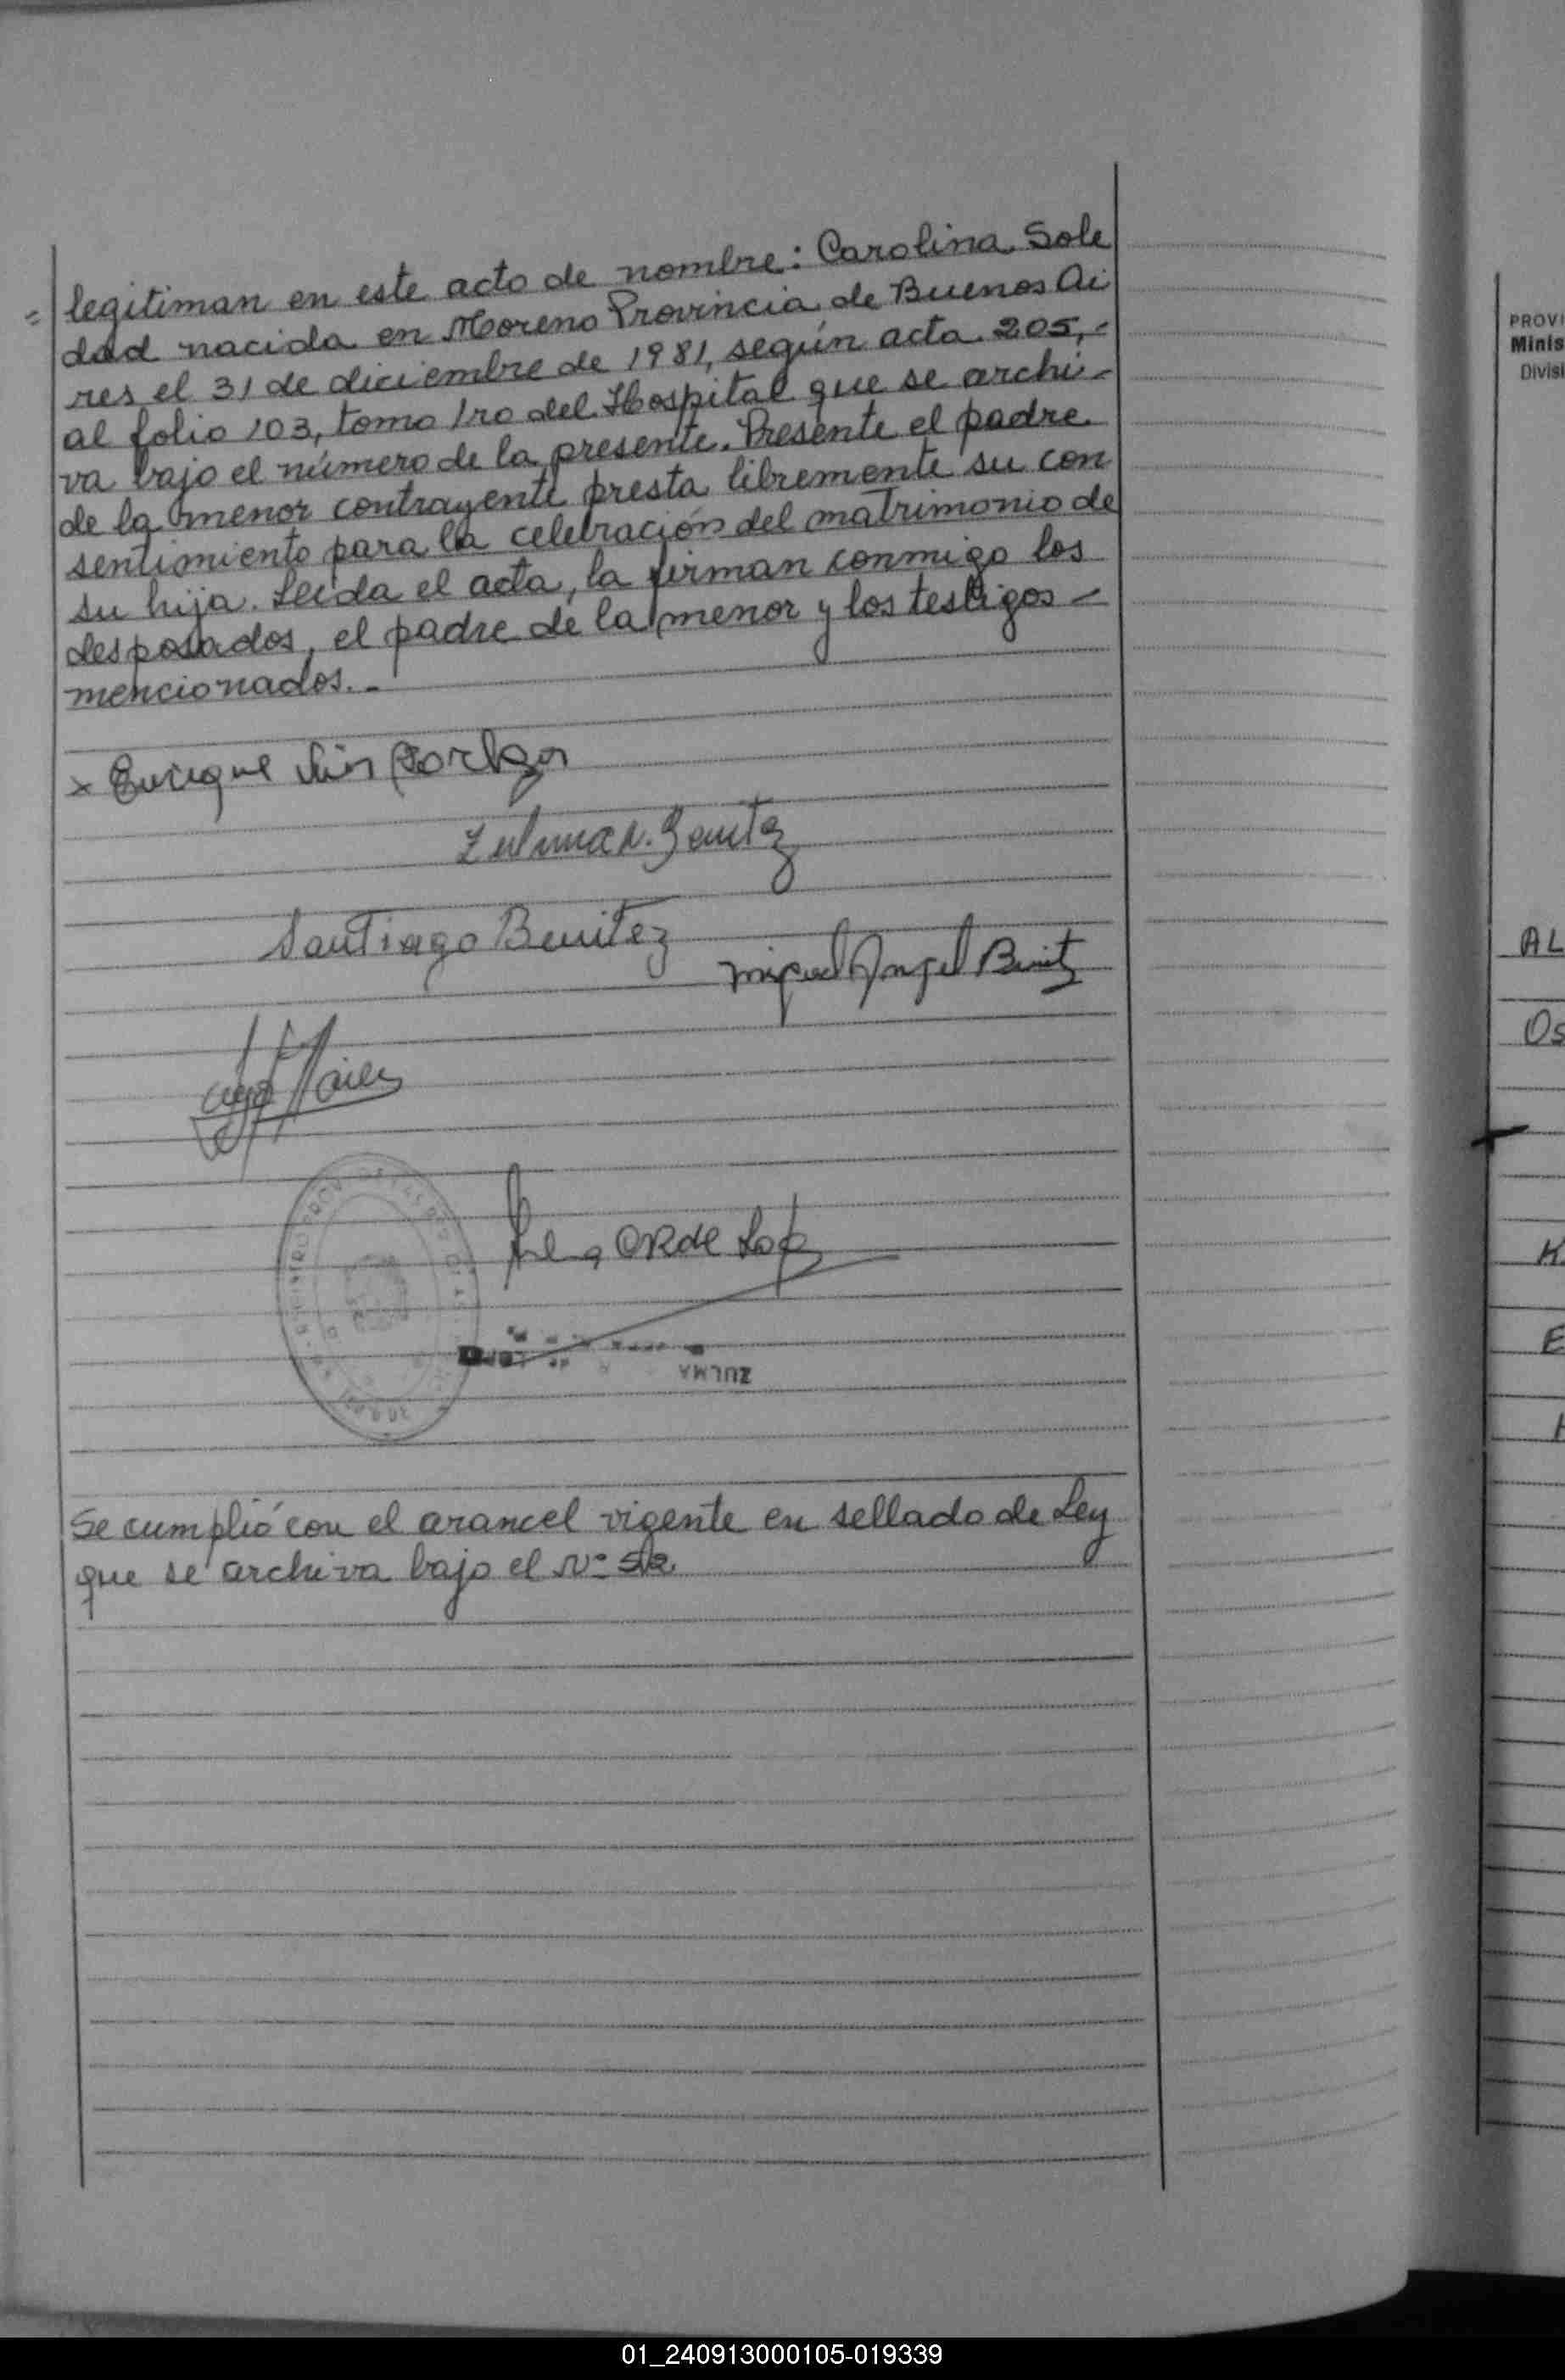 = legitiman en este acto de nombre: Carolina Sole
dad nacida en Moreno Provincia de Buenos Ai
res el 31 de diciembre de 1981, según acta 205,-
al folio 103, tomo 1ro del Hospital que se archi-
va bajo el número de la presente. Presente el padre
de la menor contrayente presta libremente su con
sentimiento para la celebración del matrimonio de
su hija. Leída el acta, la firman conmigo los
desposados, el padre de la menor y los testigos -
mencionados.-
x Enrique
Zulma N. Benitez
Santiago Benitez
Miguel Angel Benitez
ZULMA
Se cumplió con el arancel vigente en sellado de Ley
que se archiva bajo el Nº 52.
PROVI
Minis
Divisi
AL
Os
K
E
01_240913000105-019339